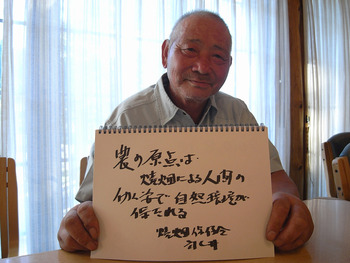 農の原点は
焼畑による人間の
働く姿で自然環境が
保たれる
焼畑